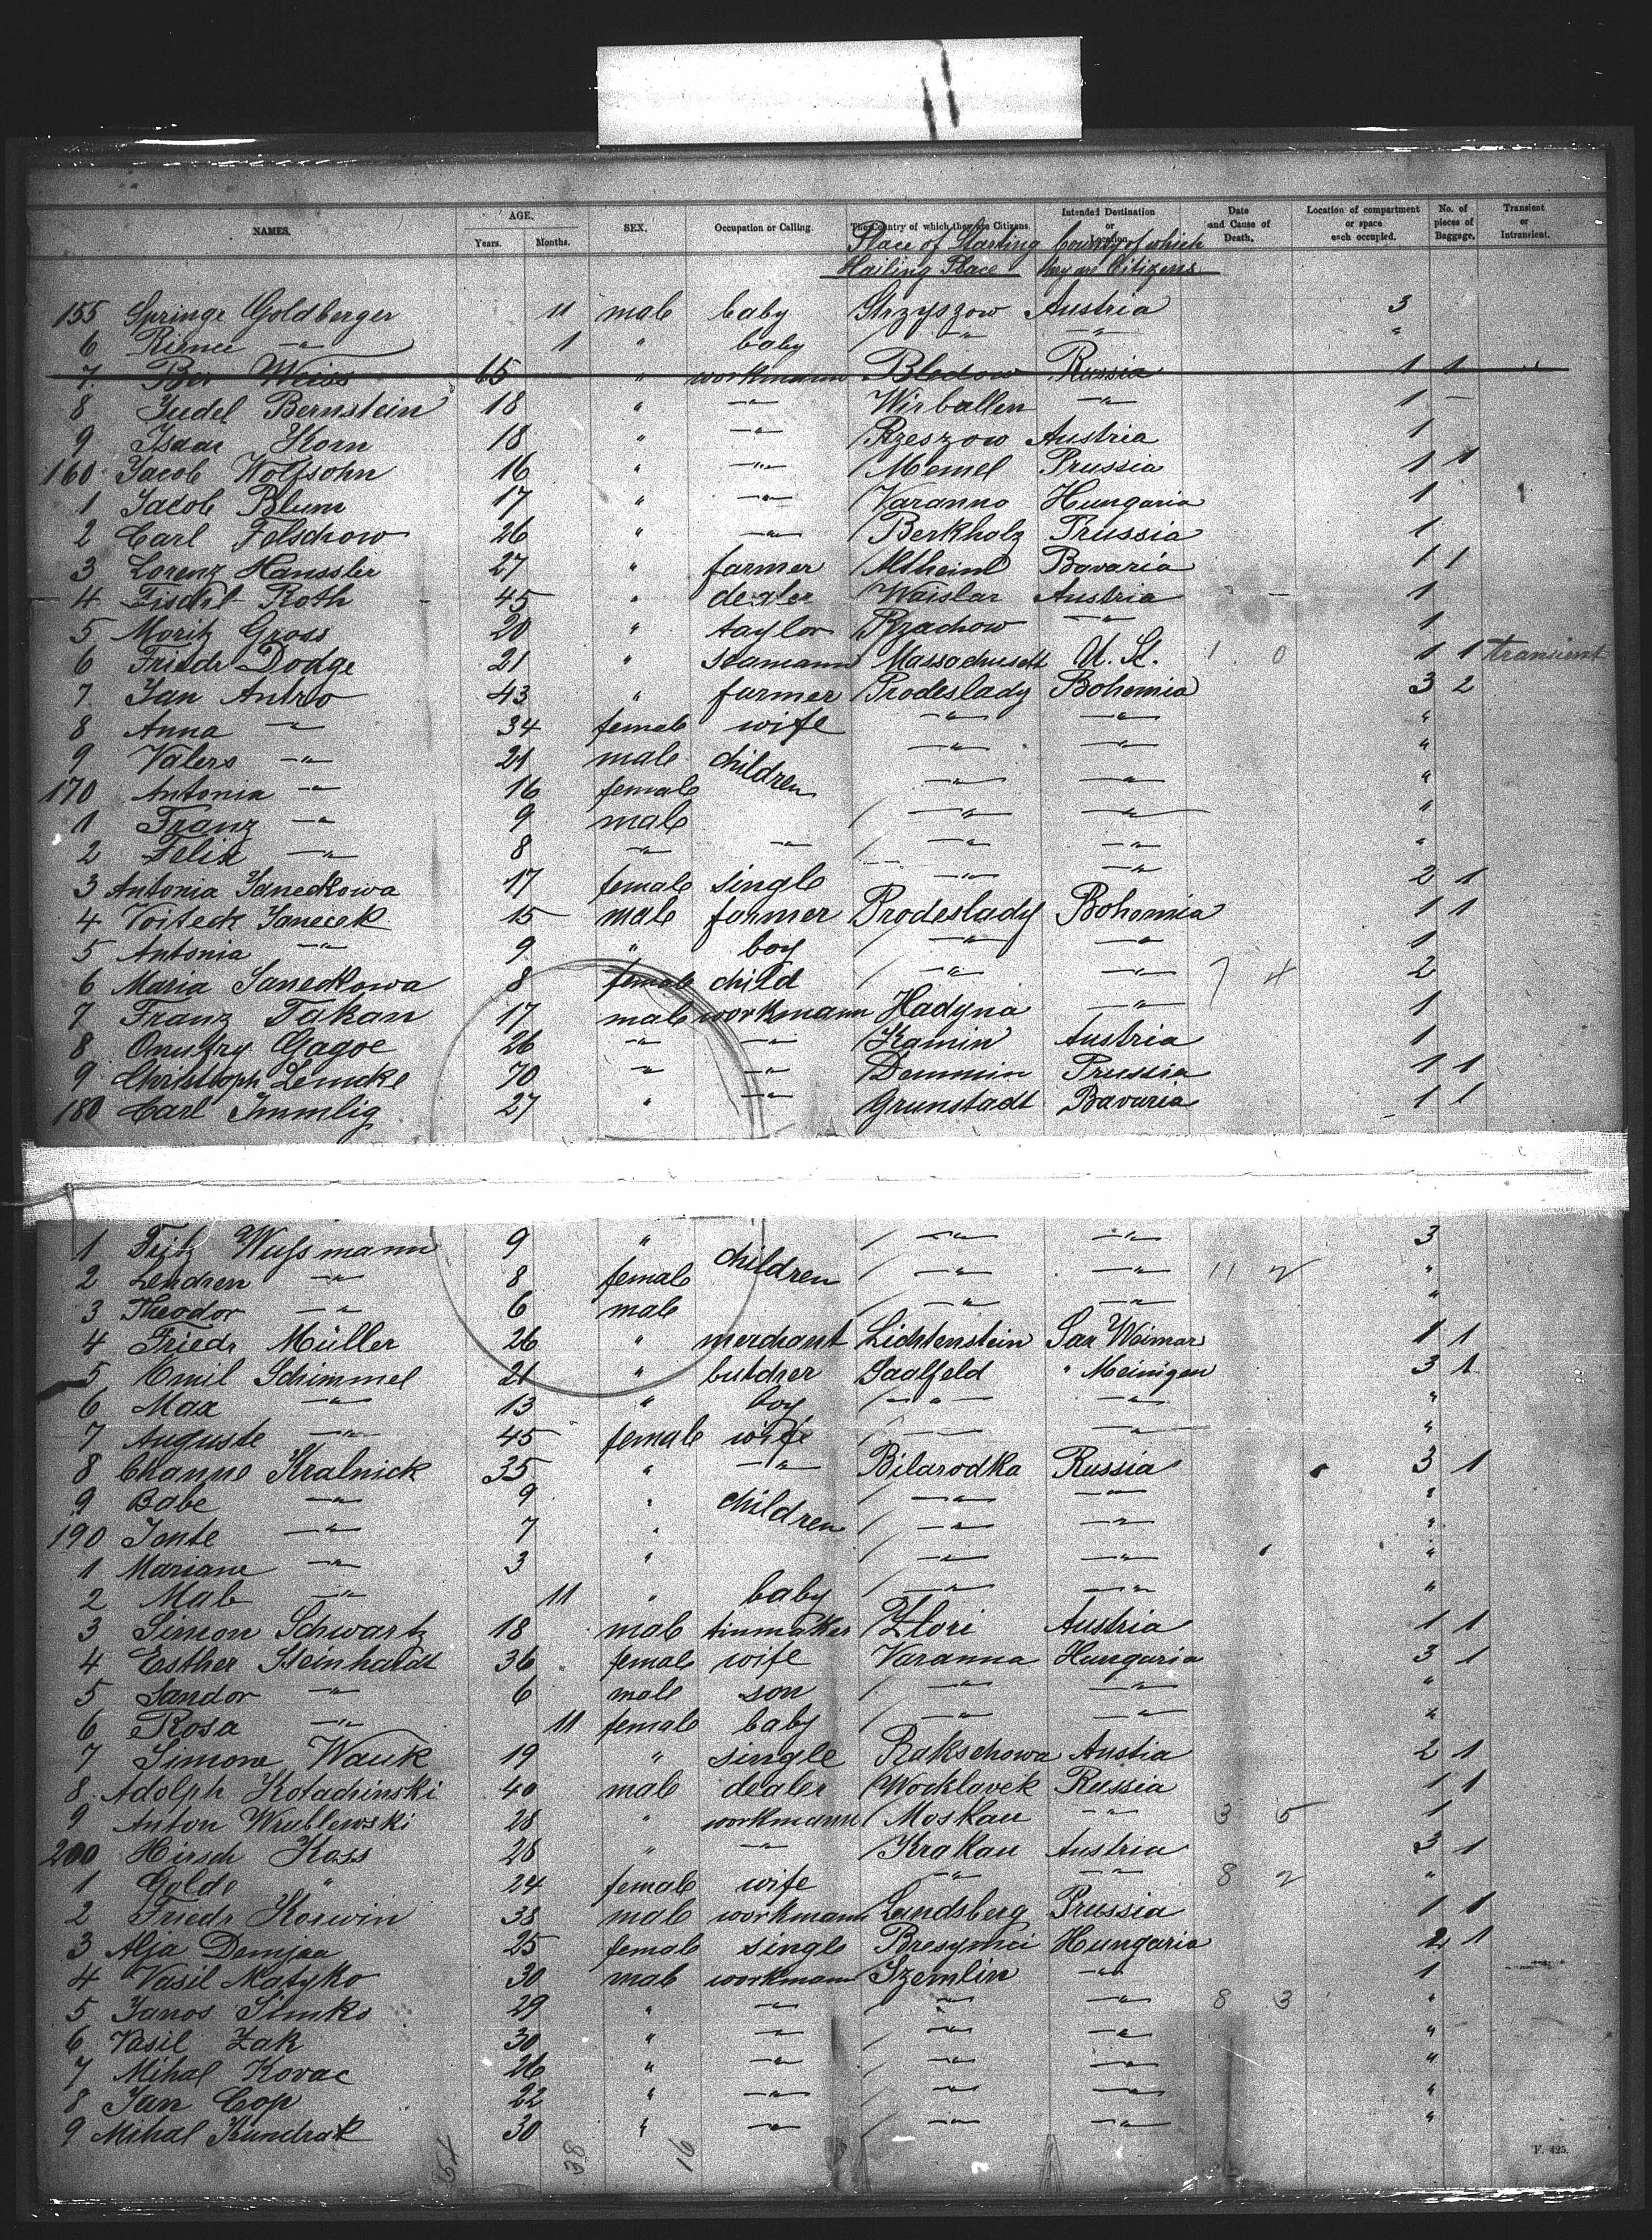 NAMES. AGE. Years. Months. SEX. Occupation or Calling. The Country of which they are Citizens. Intended Destination or Location. Date and Cause of Death. Location of compartment or space each occupied. No. of pieces of Baggage. Transient or Intransient.
Place of Starting Country of which
Hailing Place they are Citizens
155 Springe Goldberger 11 male baby Strzyszow Austria 3
6 Riemei " 1 " baby " " "
7. Ber Weiss 15 " workmann Bledow Russia 1 1
8 Judel Bernstein 18 " " Wirballen " 1 -
9 Isaac Korn 18 " " Rzeszow Austria 1
160 Jacob Wolfsohn 16 " " Memel Prussia 1 1
1 Jacob Blum 17 " " Varanno Hungaria 1
2 Carl Felschow 26 " " Berkholz Prussia 1
3 Lorenz Haussler 27 " farmer Altheim Bavaria 1 1
4 Fischl Roth 45 " dealer Waislar Austria 1
5 Moritz Gross 20 " taylor Rzachow " 1
6 Friedr Dodge 21 " seamann Massachusett U. St. 1 0 1 1 transient
7. Jan Antro 43 " farmer Prodeslady Bohemia 3 2
8 Anna " 34 female wife " " "
9 Valers " 21 male children " " "
170 Antonia " 16 female " " "
1 Franz " 9 male " " "
2 Felix " 8 " " " " "
3 Antonia Janeckowa 17 female single " " 2 1
4 Voiteck Janecek 15 male farmer Prodeslady Bohemia 1 1
5 Antonia " 9 " boy " " 1
6 Maria Janeckowa 8 female child " " 7 4 2
7 Franz Takan 17 male workmann Hadyna " 1
8 Onufry Gagoe 26 " " Kamin Austria 1
9 Christoph Lemcke 70 " " Demmin Prussia 1 1
180 Carl Immlig 27 " " Grunstadt Bavaria 1 1
1 Fritz Wussmann 9 " children " " 3
2 Lenchen " 8 female " " 11 2 "
3 Theodor " 6 male " " "
4 Friedr Müller 26 " merchant Lichtenstein Sax Weimar 1 1
5 Emil Schimmel 21 " butcher Saalfeld " Meinigen 3 1
6 Max " 13 " boy " " "
7 Auguste " 45 female wife " " "
8 Channe Kralnick 35 " " Bilarodka Russia 3 1
9 Babe " 9 " children " " "
190 Jente " 7 " " " "
1 Mariane " 3 " " " "
2 Male " 11 " baby " " "
3 Simon Schwartz 18 male tinmaker Zlori Austria 1 1
4 Esther Steinhardt 36 female wife Varanna Hungaria 3 1
5 Sandor " 6 male son " " "
6 Rosa " 11 female baby " " "
7 Simone Wauk 19 " single Rakschowa Austia 2 1
8. Adolph Kotachinski 40 male dealer Wocklavek Russia 1 1
9 Anton Wrublewski 28 " workmann Moskau " 3 5 1
200 Hirsch Koss 28 " " Krakau Austria 3 1
1 Golde " 24 female wife " " 8 2 "
2 Friedr Korwin 38 male workmann Landsberg Prussia 1 1
3 Alja Demjaa 25 female single Hungaria 2 1
4 Vasil Matyko 30 male workmann Szemlin " 1
5 Janos Simko 29 " " " " 8 3 "
6 Vasil Zak 30 " " " " "
7 Mihal Kovac 26 " " " " "
8 Jan Cop 22 " " " " "
9 Mihal Kundrak 30 " " " " "
F. 425.